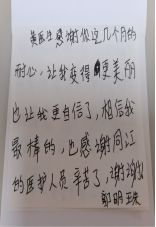 黄医生感谢你这几个月的
耐心，让我变得更美丽
也让我更自信了，相信我
最棒的，也感谢同江
的医护人员辛苦了，谢谢你
郭明